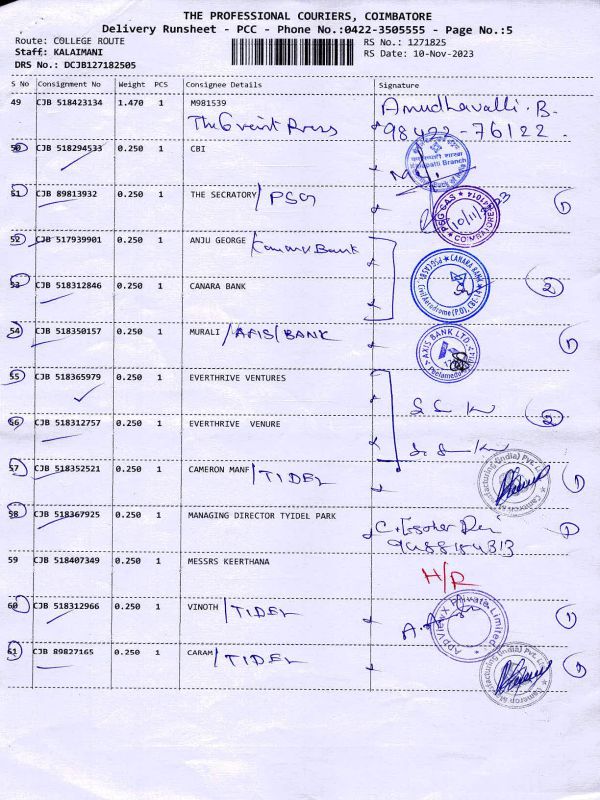 THE PROFESSIONAL COURIERS, COIMBATORE
Delivery Runsheet - PCC - Phone No.:0422-3505555 - Page No.:5
Route: COLLEGE ROUTE RS No.: 1271825
Staff: KALAIMANI RS Date: 10-Nov-2023
DRS No.: DCJB127182505
S No Consignment No Weight PCS Consignee Details Signature
49 CJB 518423134 1.470 1 M981539 Amudhavalli.B.
98422-76122.
50 CJB 518294533 0.250 1 CBI
51 CJB 89813932 0.250 1 THE SECRATORY/PSG 10/11/23 1
PSG CAS COIMBATORE 641014
52 CJB 517939901 0.250 1 ANJU GEORGE/Canara Bank
CANARA BANK
53 CJB 518312846 0.250 1 CANARA BANK 2
Civil Aerodrome (P.O)
54 CJB 518350157 0.250 1 MURALI/AXIS/BANK 1
AXIS BANK LTD.
Peelamedu
55 CJB 518365979 0.250 1 EVERTHRIVE VENTURES
56 CJB 518312757 0.250 1 EVERTHRIVE VENURE 2
57 CJB 518352521 0.250 1 CAMERON MANF/TIDEL 1
Manufacturing (India) Pvt. Ltd
58 CJB 518367925 0.250 1 MANAGING DIRECTOR TYIDEL PARK 1
59 CJB 518407349 0.250 1 MESSRS KEERTHANA H/R
60 CJB 518312966 0.250 1 VINOTH/TIDEL 1
AppViewX Private Limited
61 CJB 89827165 0.250 1 CARAM/TIDEL 1
Manufacturing (India) Pvt. Ltd